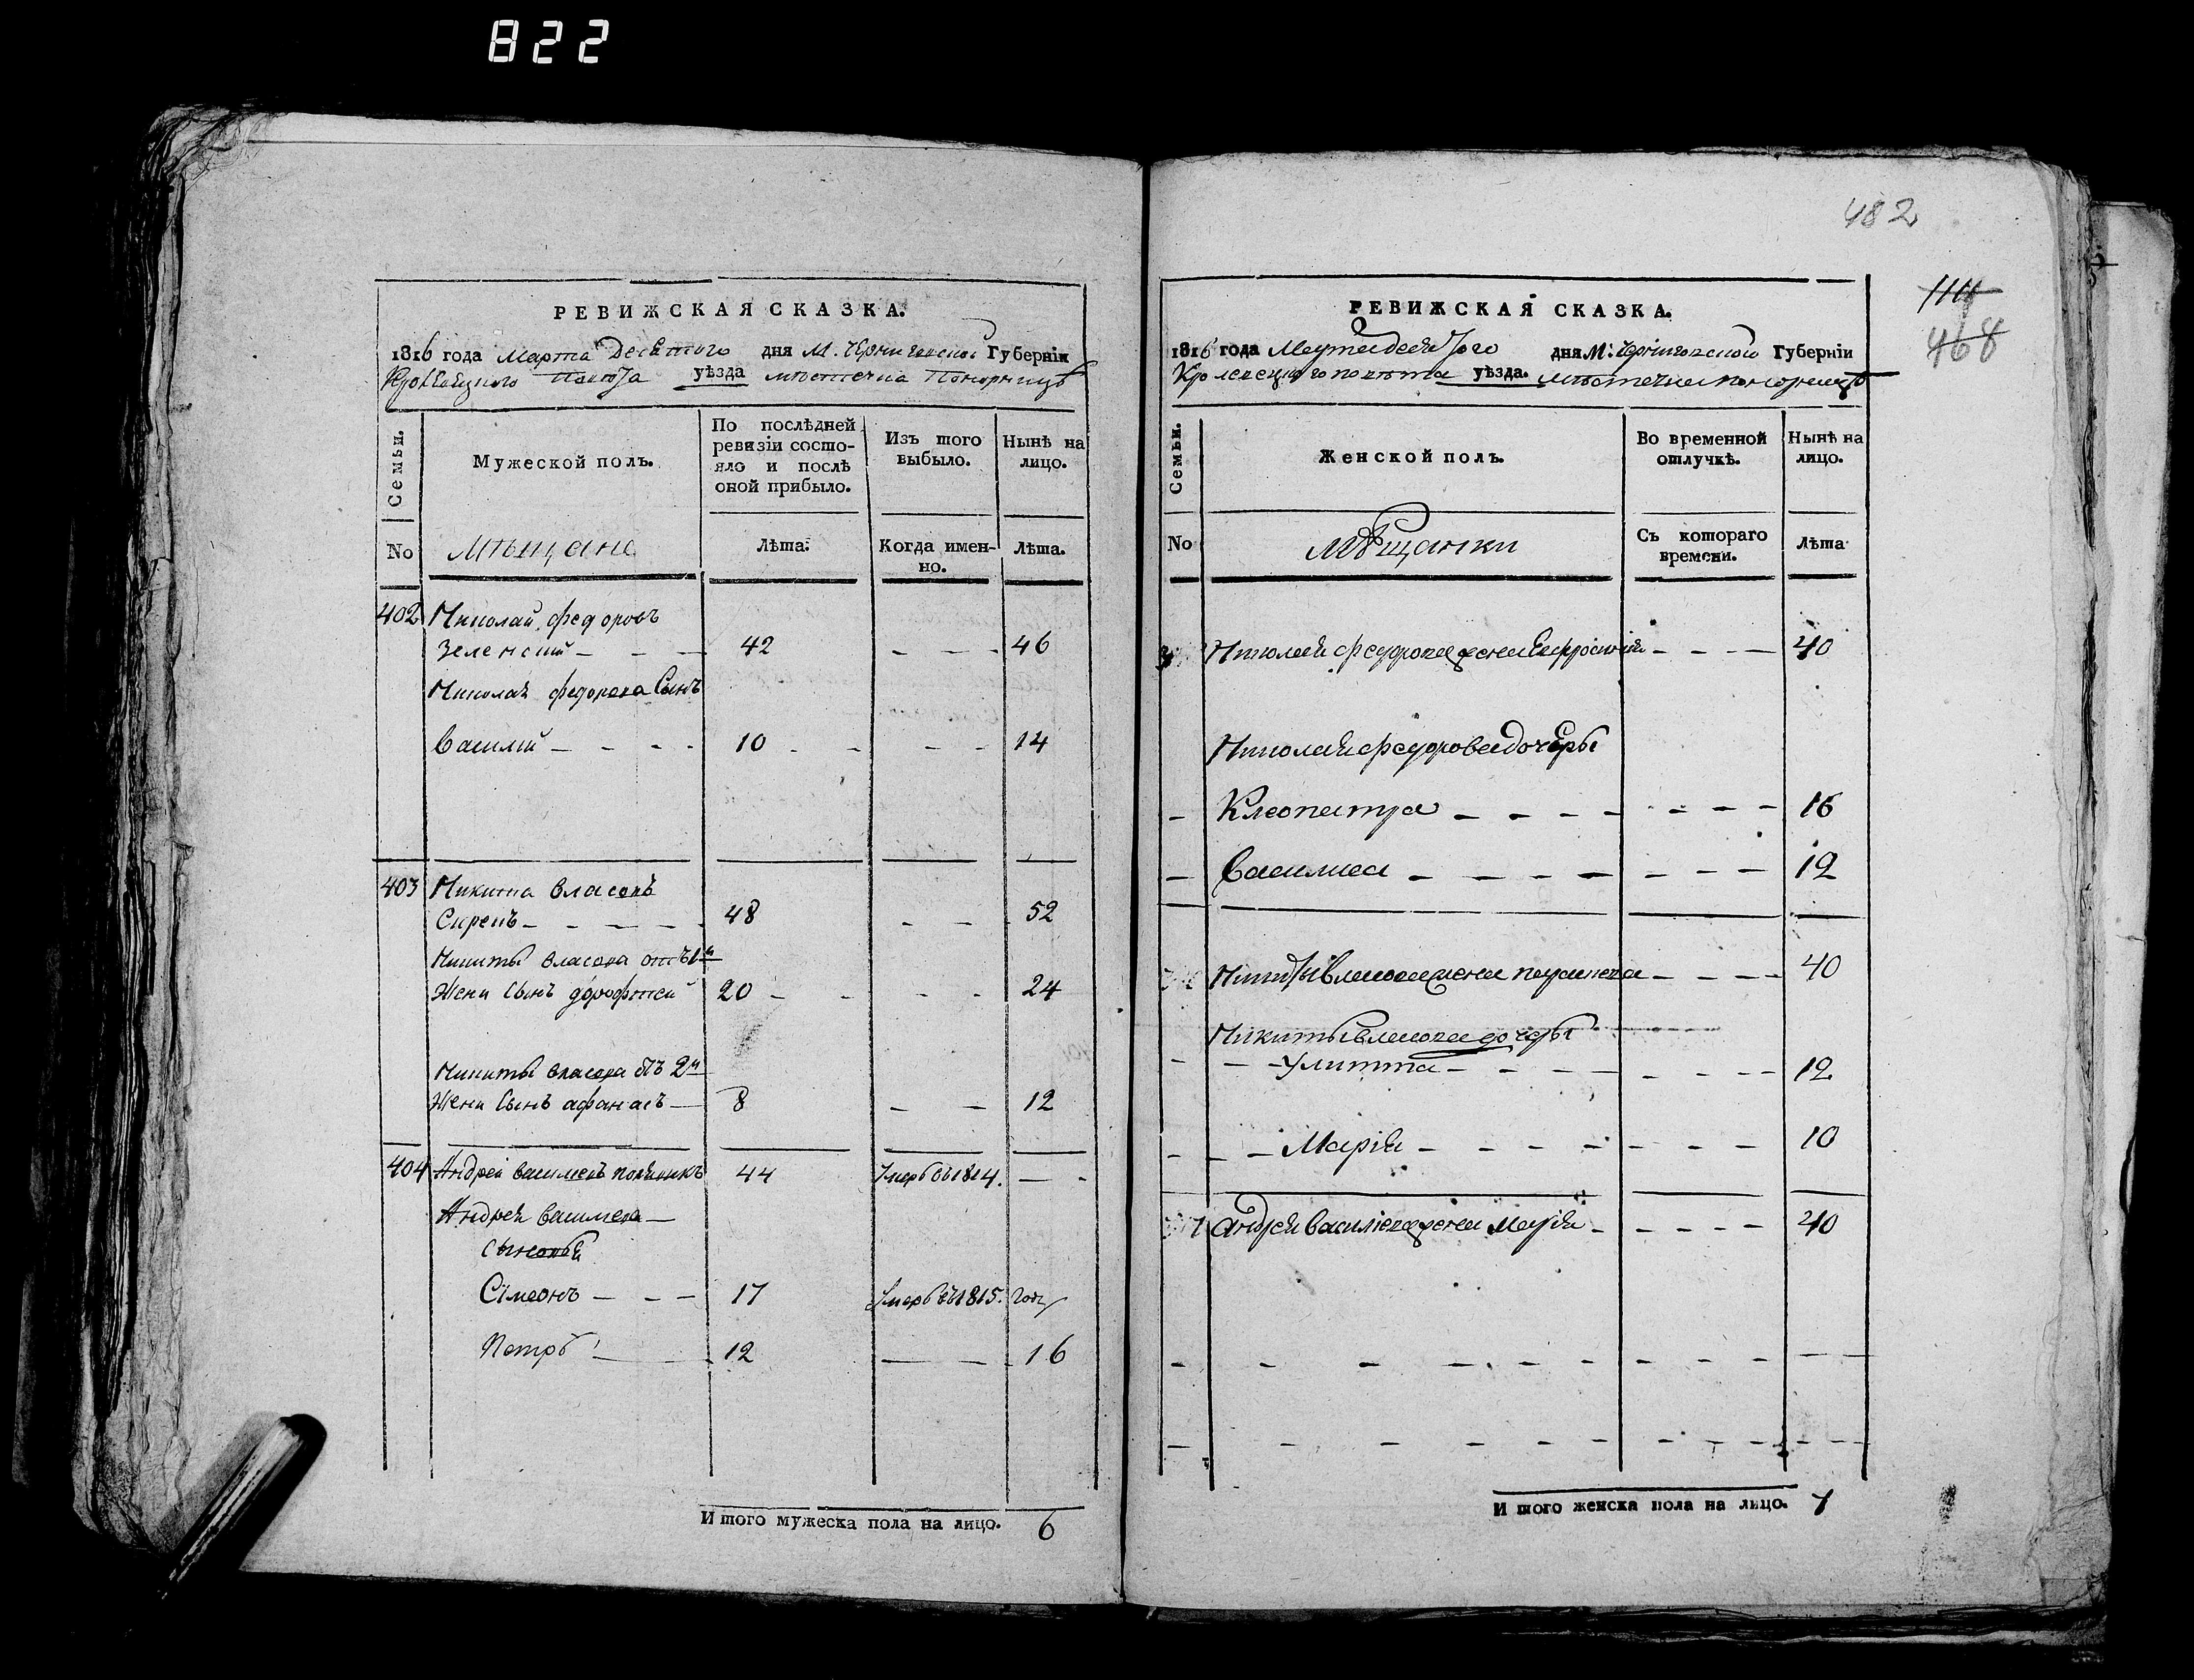 822
РЕВИЖСКАЯ СКАЗКА.
1816 года Марта Десятого дня М. Черниговской Губерніи
Кролевецкого Повета уѣзда мѣстечка Понорницъ
Семьи.
Мужеской полъ.
По послѣдней ревизіи состо-
яло и послѣ оной прибыло.
Изъ того выбыло.
Нынѣ на лицо.
No
Мѣщане
Лѣта.
Когда имен-
но.
Лѣта.
402 Николай Федоровъ
Зеленский 42 46
Николая Федорова Сынъ
Василий 10 14
403 Никита Власовъ
48 52
Никиты Власова отъ 1й
Жени Сынъ дорофтей 20 24
Никиты Власова отъ 2й
Жени Сынъ афанасъ 8 12
404 Андрей Василевъ 44 Умеръ въ 1814.
Андрея Василева
Сыновья
Сімеонъ 17 Умеръ въ 1815. году
Петръ 12 16
Итого мужеска пола на лицо. 6
482
114
468
РЕВИЖСКАЯ СКАЗКА.
1816 года Марта десятого дня М: Черниговской Губерніи
Кролевецкого повѣта уѣзда. мѣстечка Понорницъ
Семьи.
Женской полъ.
Во временной отлучкѣ.
Нынѣ на лицо.
No
Мѣщанки
Съ котораго времени.
Лѣта
Николая Федорова жена Ефросинія 40
Николая Федорова дочеры
Клеопатра 16
Василиса 12
Никиты Власова жена 40
Никиты Власова дочеры
Улитта 12
Марія 10
Андрея Василіева жена Марія 40
Итого женска пола на лицо. 7